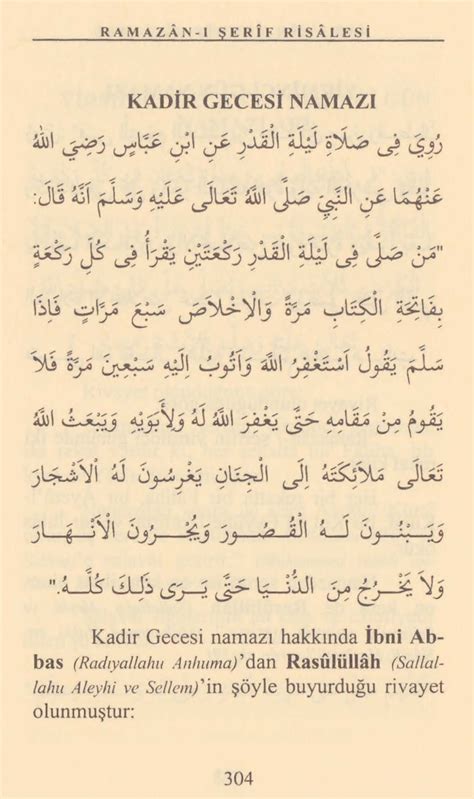 RAMAZÂN-I ŞERÎF RİSÂLESİ
KADİR GECESİ NAMAZI
رُوِيَ فِى صَلَاةِ لَيْلَةِ الْقَدْرِ عَنِ ابْنِ عَبَّاسٍ رَضِيَ اللهُ
عَنْهُمَا عَنِ النَّبِيِّ صَلَّى اللهُ تَعَالَى عَلَيْهِ وَسَلَّمَ اَنَّهُ قَالَ:
"مَنْ صَلَّى فِى لَيْلَةِ الْقَدْرِ رَكْعَتَيْنِ يَقْرَأُ فِى كُلِّ رَكْعَةٍ
بِفَاتِحَةِ الْكِتَابِ مَرَّةً وَالْاِخْلَاصَ سَبْعَ مَرَّاتٍ فَاِذَا
سَلَّمَ يَقُولُ اَسْتَغْفِرُ اللهَ وَاَتُوبُ اِلَيْهِ سَبْعِينَ مَرَّةً فَلاَ
يَقُومُ مِنْ مَقَامِهِ حَتَّى يَغْفِرَ اللهُ لَهُ وَلِأَبَوَيْهِ وَيَبْعَثُ اللهُ
تَعَالَى مَلاَئِكَتَهُ اِلَى الْجِنَانِ يَغْرِسُونَ لَهُ الْاَشْجَارَ
وَيَبْنُونَ لَهُ الْقُصُورَ وَيُجْرُونَ الْاَنْهَارَ
وَلاَ يَخْرُجُ مِنَ الدُّنْيَا حَتَّى يَرَى ذٰلِكَ كُلَّهُ."
Kadir Gecesi namazı hakkında İbni Ab-
bas (Radıyallahu Anhuma)'dan Rasûlüllâh (Sallal-
lahu Aleyhi ve Sellem)'in şöyle buyurduğu rivayet
olunmuştur:
304